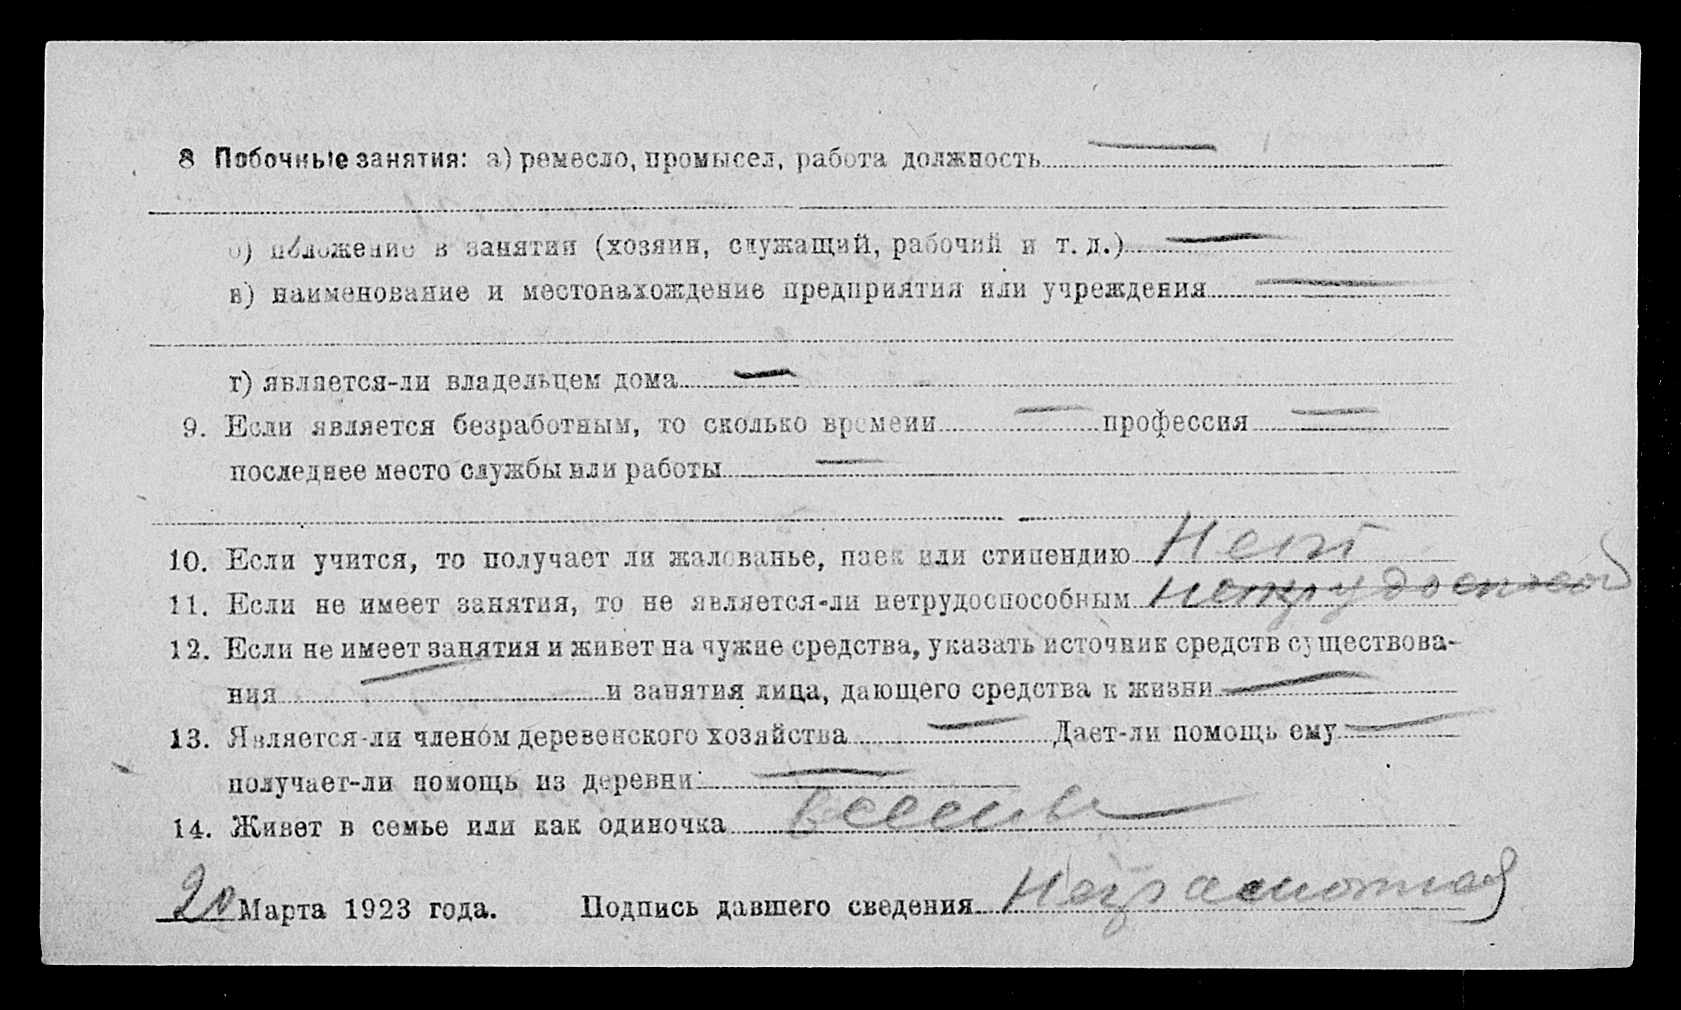 8 Побочные занятия: а) ремесло, промысел, работа должность —
б) положение в занятии (хозяин, служащий, рабочий и т. д.) —
в) наименование и местонахождение предприятия или учреждения —
г) является-ли владельцем дома —
9. Если является безработным, то сколько времени — профессия —
последнее место службы или работы —
10. Если учится, то получает ли жалованье, паек или стипендию Нет
11. Если не имеет занятия, то не является-ли нетрудоспособным
12. Если не имеет занятия и живет на чужие средства, указать источник средств существова-
ния — и занятия лица, дающего средства к жизни —
13. Является-ли членом деревенского хозяйства — Дает-ли помощь ему —
получает-ли помощь из деревни: —
14. Живет в семье или как одиночка всемье
20 Марта 1923 года. Подпись давшего сведения Неграмотная